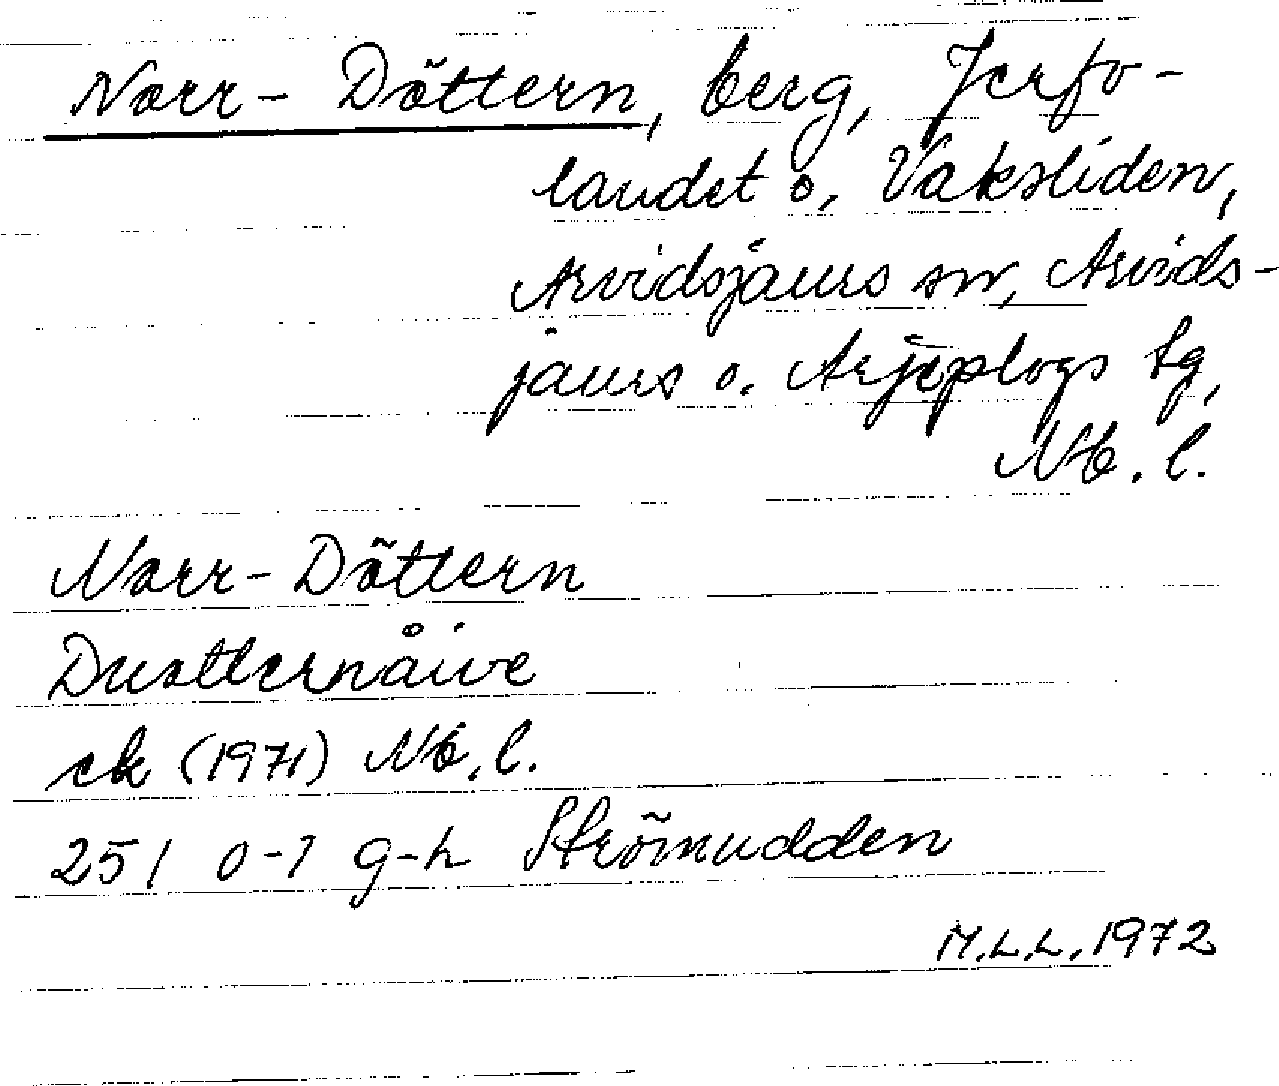 Norr-Döttern, berg, Jerfo-
landet o. Vaksliden,
Arvidsjaurs sn, Arvids-
jaurs o. Arjeplogs tg,
Nb. l.
Norr-Döttern
Duotternåive
ek (1971) Nb. l.
251 0-1 g-h Strömudden
M.L.L. 1972